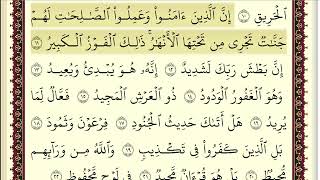 ٱلْحَرِيقِ ١٠ إِنَّ ٱلَّذِينَ ءَامَنُوا۟ وَعَمِلُوا۟ ٱلصَّـٰلِحَـٰتِ لَهُمْ
جَنَّـٰتٌ تَجْرِى مِن تَحْتِهَا ٱلْأَنْهَـٰرُ ۚ ذَٰلِكَ ٱلْفَوْزُ ٱلْكَبِيرُ ١١
إِنَّ بَطْشَ رَبِّكَ لَشَدِيدٌ ١٢ إِنَّهُۥ هُوَ يُبْدِئُ وَيُعِيدُ ١٣
وَهُوَ ٱلْغَفُورُ ٱلْوَدُودُ ١٤ ذُو ٱلْعَرْشِ ٱلْمَجِيدُ ١٥ فَعَّالٌ لِّمَا
يُرِيدُ ١٦ هَلْ أَتَىٰكَ حَدِيثُ ٱلْجُنُودِ ١٧ فِرْعَوْنَ وَثَمُودَ ١٨
بَلِ ٱلَّذِينَ كَفَرُوا۟ فِى تَكْذِيبٍ ١٩ وَٱللَّهُ مِن وَرَآئِهِم
مُّحِيطٌۢ ٢٠ بَلْ هُوَ قُرْءَانٌ مَّجِيدٌ ٢١ فِى لَوْحٍ مَّحْفُوظٍۭ ٢٢